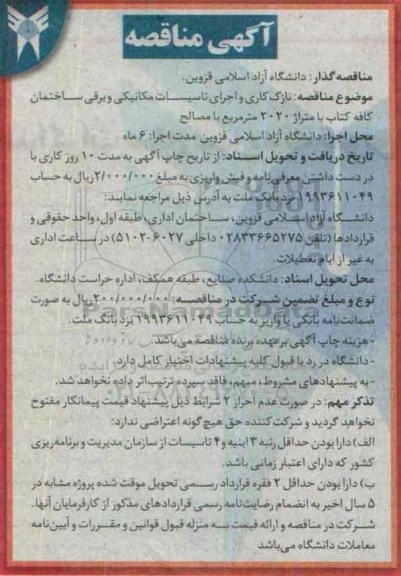 آگهی مناقصه
مناقصه گذار: دانشگاه آزاد اسلامی قزوین.
موضوع مناقصه: نازک کاری و اجرای تاسیسات مکانیکی و برقی ساختمان
کافه کتاب با متراژ ۲۰۲۰ مترمربع با مصالح
محل اجرا: دانشگاه آزاد اسلامی قزوین مدت اجرا: ۶ ماه
تاریخ دریافت و تحویل اسناد: از تاریخ چاپ آگهی به مدت ۱۰ روز کاری با
در دست داشتن معرفی نامه و فیش واریزی به مبلغ ۲/۰۰۰/۰۰۰ ریال به حساب
۱۹۹۳۶۱۱۰۴۹ نزد بانک ملت به آدرس ذیل مراجعه نمایند:
دانشگاه آزاد اسلامی قزوین، ساختمان اداری، طبقه اول، واحد حقوقی و
قراردادها (تلفن ۰۲۸۳۳۶۶۵۲۷۵ داخلی ۶۰۲۷-۵۱۰۲) در ساعت اداری
به غیر از ایام تعطیلات.
محل تحویل اسناد: دانشکده صنایع، طبقه همکف، اداره حراست دانشگاه.
نوع و مبلغ تضمین شرکت در مناقصه: ۲۰۰/۰۰۰/۰۰۰ ریال به صورت
ضمانت‌نامه بانکی یا واریز به حساب ۱۹۹۳۶۱۱۰۴۹ نزد بانک ملت.
- هزینه چاپ آگهی برعهده برنده مناقصه می‌باشد.
- دانشگاه در رد یا قبول کلیه پیشنهادات اختیار کامل دارد.
- به پیشنهادهای مشروط، مبهم، فاقد سپرده ترتیب اثر داده نخواهد شد.
تذکر مهم: در صورت عدم احراز ۲ شرایط ذیل پیشنهاد قیمت پیمانکار مفتوح
نخواهد گردید و شرکت کننده حق هیچ گونه اعتراضی ندارد:
الف) دارا بودن حداقل رتبه ۳ ابنیه و ۴ تاسیسات از سازمان مدیریت و برنامه ریزی
کشور که دارای اعتبار زمانی باشد.
ب) دارا بودن حداقل ۲ فقره قرارداد رسمی تحویل موقت شده پروژه مشابه در
۵ سال اخیر به انضمام رضایت نامه رسمی قراردادهای مذکور از کارفرمایان آنها.
شرکت در مناقصه و ارائه قیمت به منزله قبول قوانین و مقررات و آیین نامه
معاملات دانشگاه می‌باشد